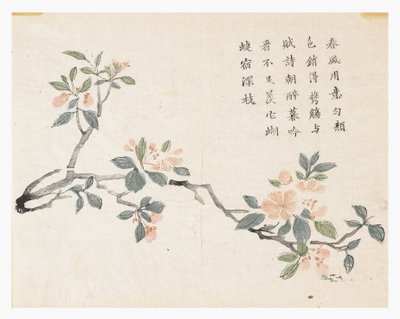 春風用意勻顏
色銷得攜觴與
賦詩朝醉暮吟
看不足羨他蝴
蝶宿深枝